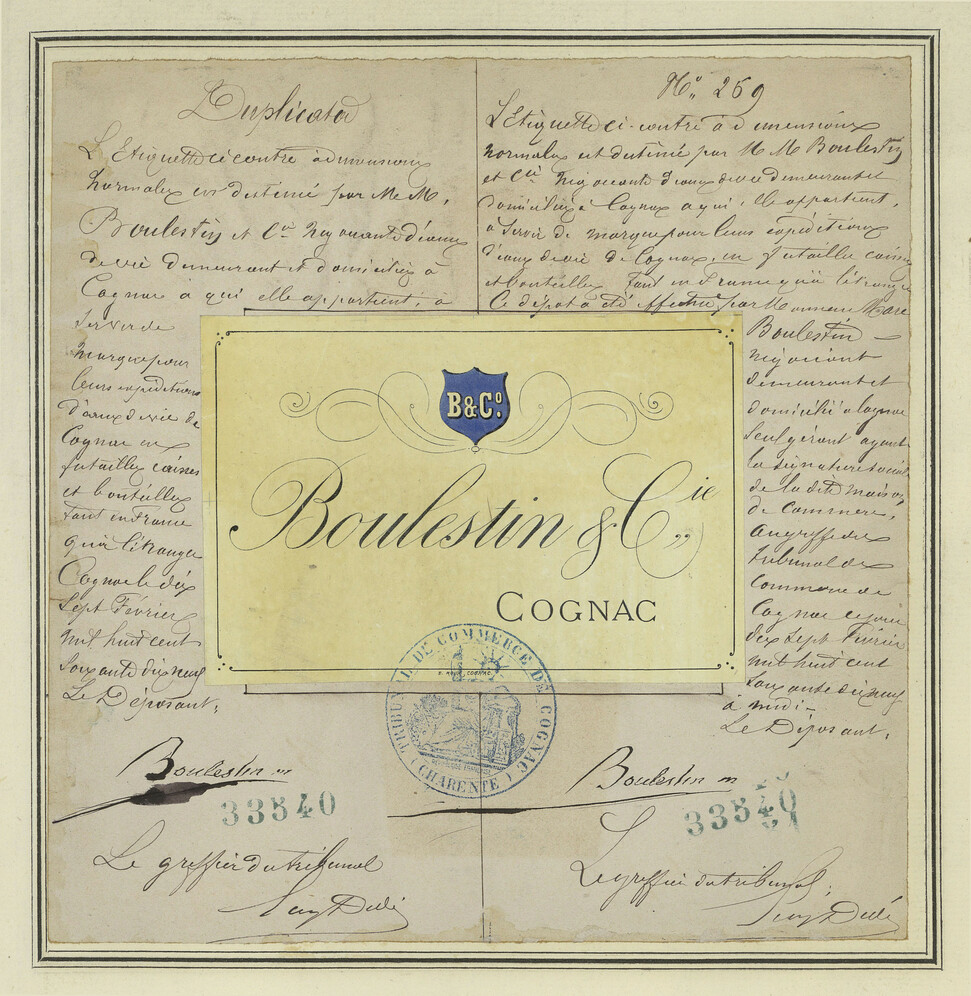 Duplicata
L'Etiquette ci contre à dimensions
Normales est destiné par M.M.
Boulestin et Cie Négociants d'eaux
de vie demeurant et domiciliés à
Cognac à qui elle appartient, à
Servir de
marque pour
leurs expéditions
d'eaux de vie de
Cognac en
futailles caisses
et bouteilles
tant en France
qu'à l'étranger
Cognac le dix
Sept Février
mil huit cent
Soixante dix neuf
Le Déposant,
Boulestin
33540
Le greffier du tribunal
No. 269
L'Etiquette ci-contre à dimensions
Normales est destiné par M M Boulestin
et Cie Négociants d'eaux de vie demeurant et
domiciliés à Cognac a qui, elle appartient,
à Servir de marque pour leurs expéditions
d'eaux de vie de Cognac, en futailles caisses
et bouteilles tant en France qu'à l'étranger
Ce dépot a été effectué par Monsieur Marc
Boulestin
négociant
demeurant et
domicilié a Cognac
Seul gérant ayant
la signature sociale
de la dite maison
de Commerce,
au greffe du
Tribunal de
Commerce de
Cognac ce jour
dix Sept Février
mil huit cent
Soixante dix neuf
à midi -
Le Déposant,
Boulestin
33540
Le greffier du tribunal,
B&Co.
Boulestin & Cie
COGNAC
TRIBUNAL DE COMMERCE DE COGNAC
(CHARENTE)